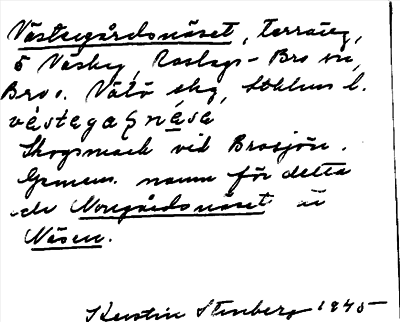 Västergårdsnäset, terräng,
5 Väsby, Roslags-Bro sn,
Bro o. Vätö skg, Sthlms l.
Skogsmark vid Brosjön.
Gemens. namn för detta
och Norrgårdsnäset är
Näsen.
Kerstin Stenberg 1945